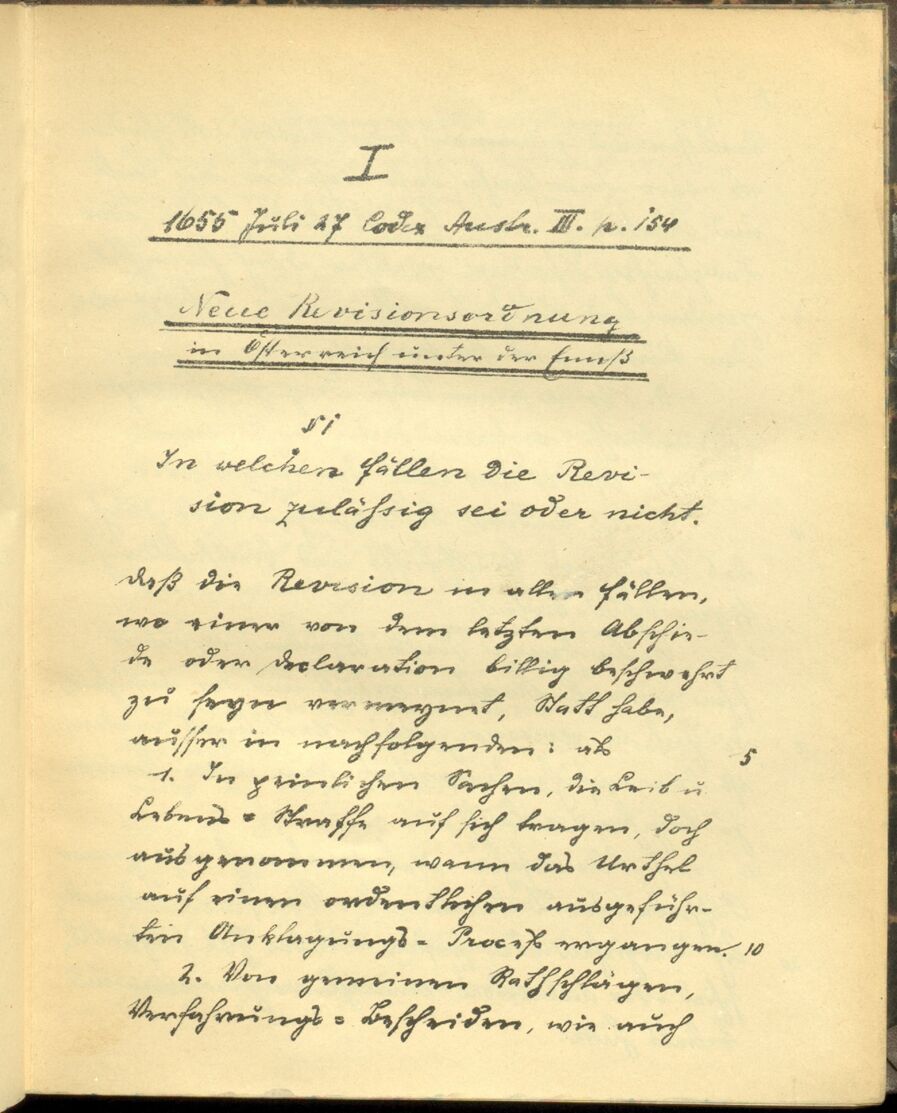 I
1655 Juli 27 Codex Austr. III. p. 154
Neue Revisionsordnung
in Österreich unter der Ennß
§ 1
In welchen Fällen die Revi-
sion zulässig sei oder nicht.
daß die Revision in allen Fällen,
wo einer von dem letzten Abschie-
de oder declaration billig beschwehrt
zu seyn vermeynet, Statt habe,
ausser in nachfolgenden: als
5
1. In peinlichen Sachen, die Leib u
Lebens = Straffe auf sich tragen, doch
ausgenommen, wann das Urthel
auf einen ordentlichen ausgeführ-
ten Anklagungs = Proceß ergangen.
10
2. Von gemeinen Rathschlägen,
Verfahrungs = Bescheiden, wie auch